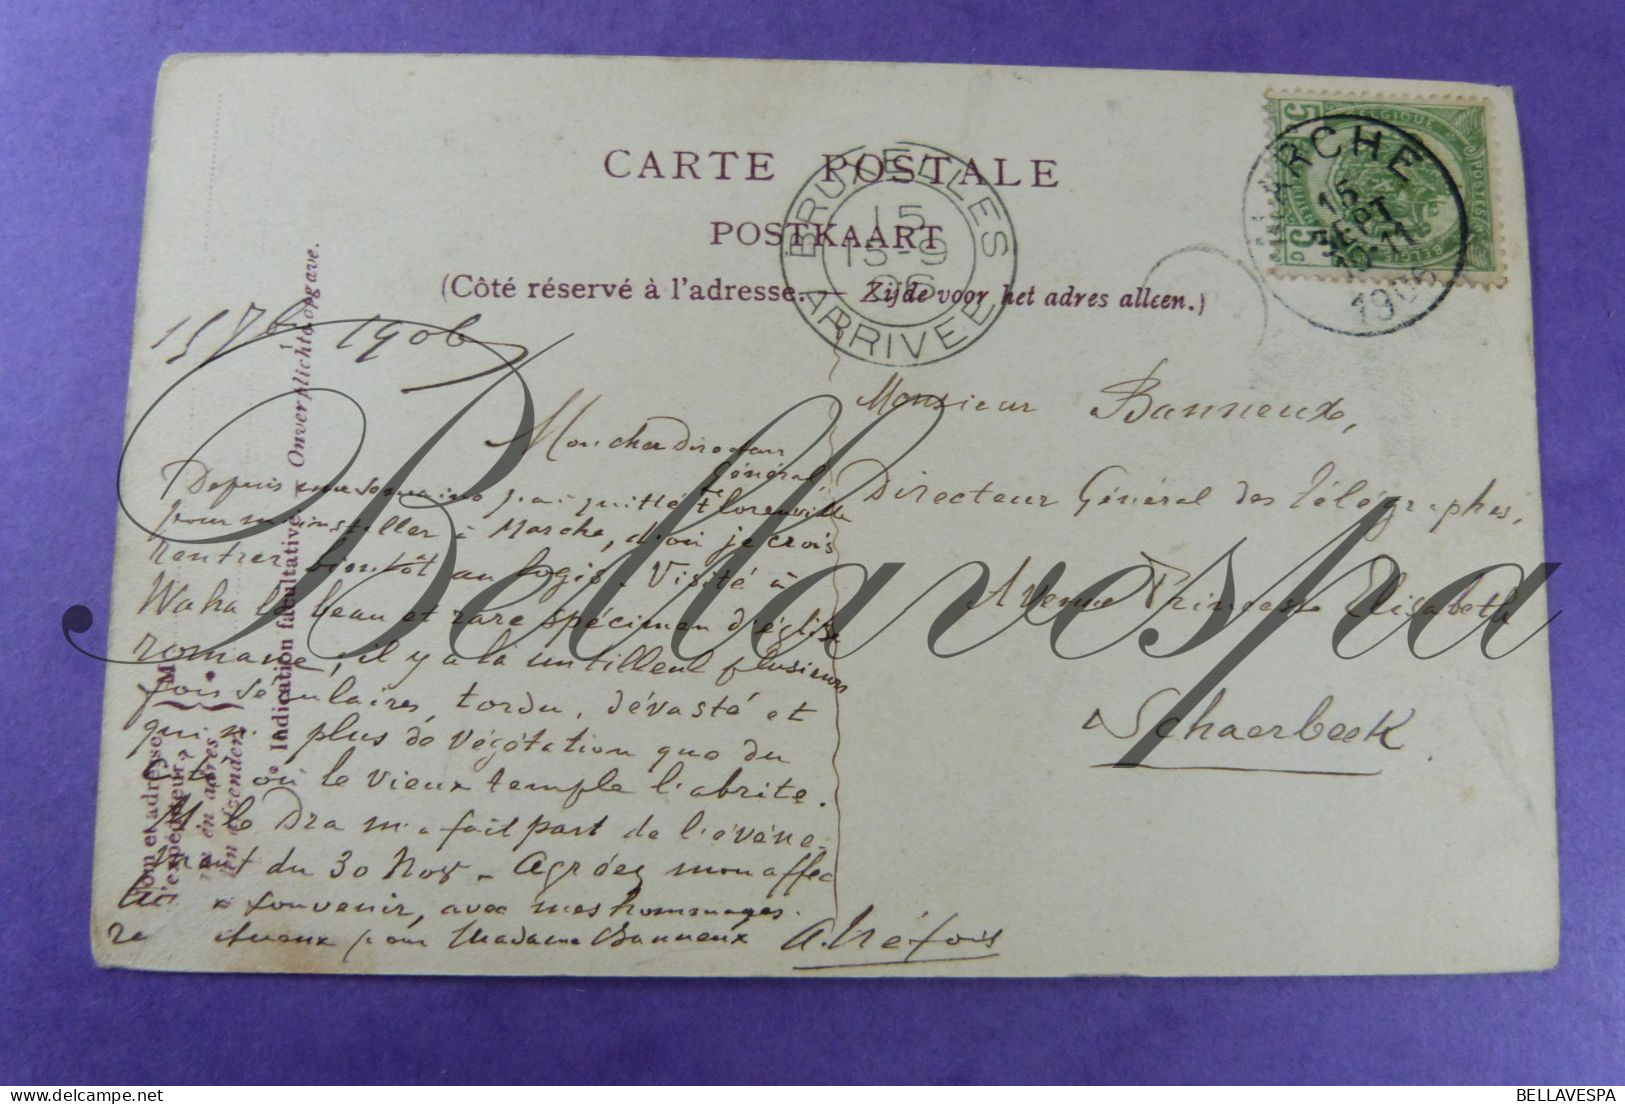 CARTE POSTALE
POSTKAART
(Côté réservé à l'adresse. — Zijde voor het adres alleen.)
BRUXELLES
15
15-9
06
ARRIVEE
MARCHE
15
SEPT
10-11
1906
BELGIQUE
POSTES
5 C
15 7b 1906
Mon cher Directeur
Général
Depuis une semaine j'ai quitté Florenville
pour m'installer à Marche, d'où je crois
rentrer bientôt au logis. Visité à
Waha le beau et rare spécimen d'église
romane; il y a là un tilleul plusieurs
fois séculaires, tordu, dévasté et
qui n'a plus de végétation que du
côté où le vieux temple l'abrite.
M. le Dra m'a fait part de l'évène-
ment du 30 Nov - Agréez mon affec
souvenir, avec mes hommages
pour Madame Banneux
Monsieur Banneux,
Directeur Général des Télégraphes,
Avenue Princesse Elisabeth
Schaerbeek.
Indication facultative. Onverplichte opgave.
Nom et adresse
de l'expéditeur
en adres
den afzender
M
Bellavespa
BELLAVESPA